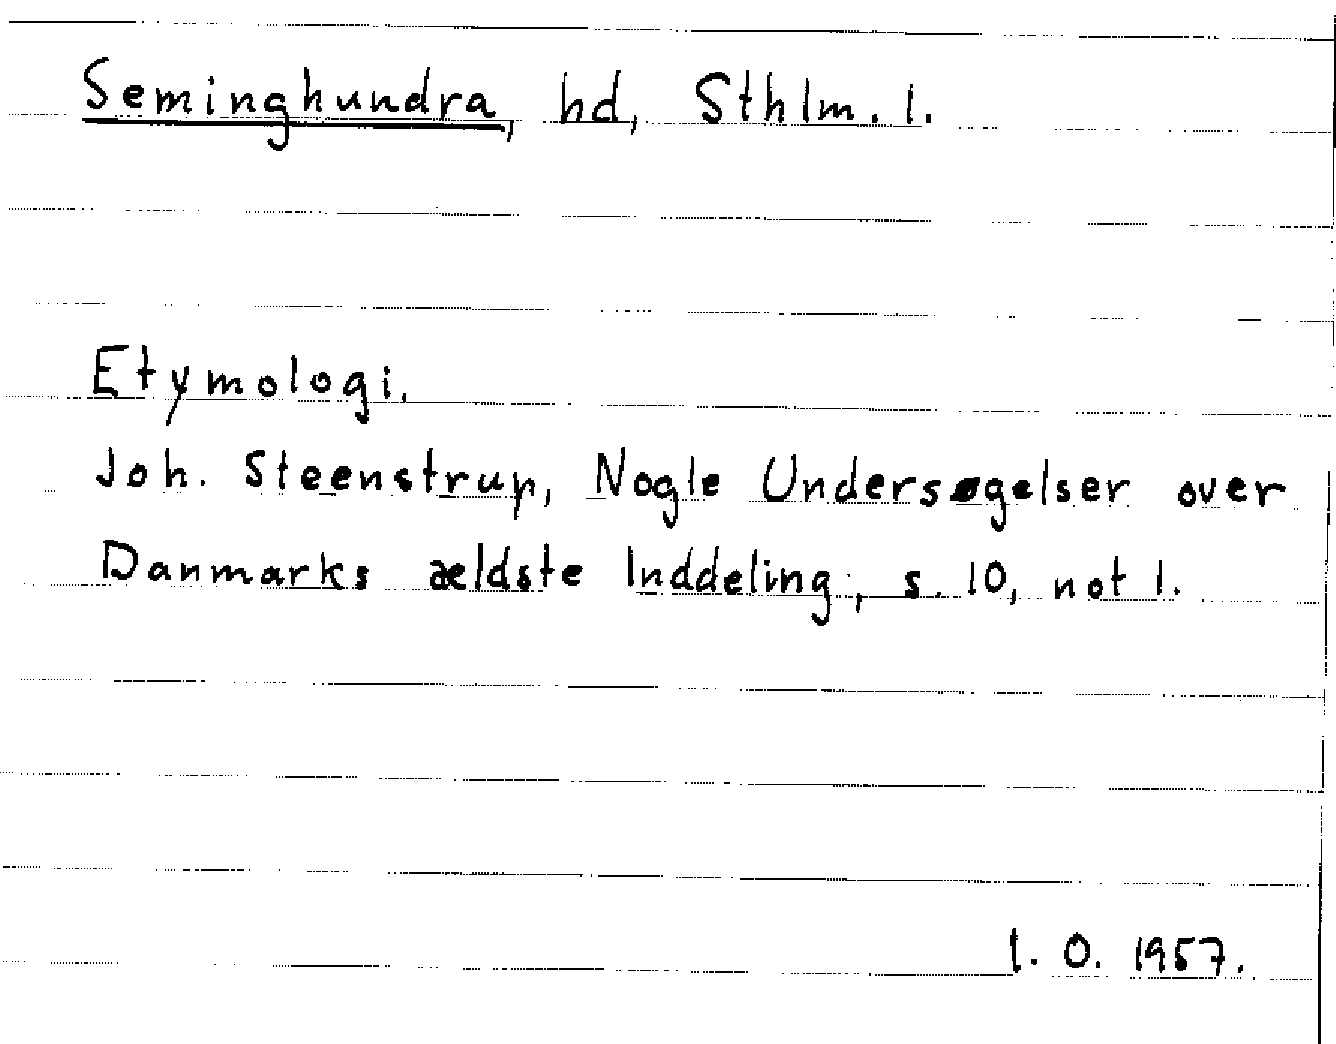 Seminghundra, hd, Sthlm. l.
Etymologi.
Joh. Steenstrup, Nogle Undersøgelser over
Danmarks ældste Inddeling, s. 10, not 1.
l. O. 1957.